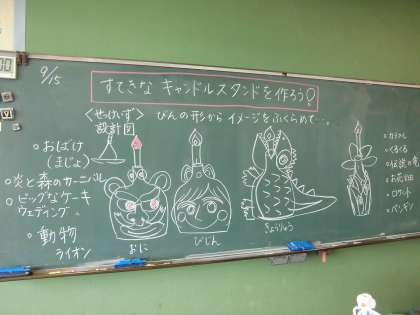 9/15
すてきな キャンドルスタンドを作ろう!
<せっけいず>
設計図
びんの形から イメージをふくらめて…。
おばけ
(まじょ)
炎と森のカーニバル
ビッグなケーキ
ウェディング
動物
ライオン
おに
びじん
きょうりゅう
くるくる
伝説の竜
お花畑
ロケット
ペンギン